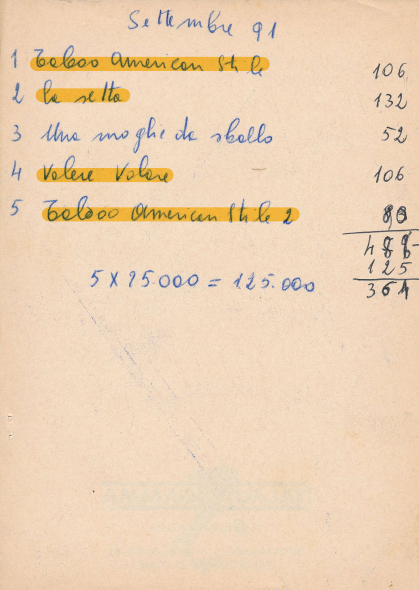 Settembre 91
1 Taboo American Stile 106
2 la setta 132
3 Una moglie da sballo 52
4 Volere Volare 106
5 Taboo American Stile 2
125
5 x 25.000 = 125.000 364